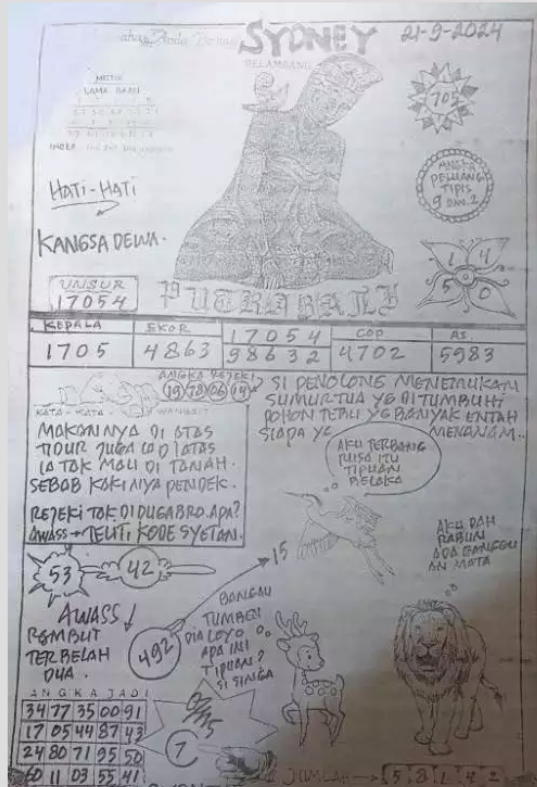 SYDNEY
21-9-2024
PELAMBANG
MISTIK
LAMA BARU
INDEX
705
HATI-HATI
ANGKA
PELUANG
TIPIS
9 DAN 2
KANGSA DEWA.
1 4
5 0
UNSUR
17054
PUTRA BALI
KEPALA EKOR 17054 COP AS
1705 4863 98632 4702 5983
ANGKA REJEKI
19 78 06 14
SI PENOLONG MENEMUKAN
SUMUR TUA YG DI TUMBUHI
POHON TEBU YG BANYAK ENTAH
SIAPA YG MENANAM..
KATA - KATA WANGSIT
MAKANNYA DI ATAS
TIDUR JUGA IA DIATAS
IA TAK MAU DI TANAH.
SEBAB KAKI NYA PENDEK.
REJEKI TAK DI DUGA BRO. APA?
AWASS → TELITI KODE SYETAN.
AKU TERBANG
TIPUAN
BELAKA
53
42
15
AKU DAH
RABUN
ADA GANGGU
AN MATA
AWASS
REMBUT
TERBELAH
DUA.
492
BANGAU
TUMBEN
DIA LOYO
APA INI
TIPUAN?
SI SINGA
ANGKA JADI
34 77 35 00 91
17 05 44 87 43
24 80 71 95 50
60 11 03 55 41
7
JUMLAH → 5 8 1 4 2